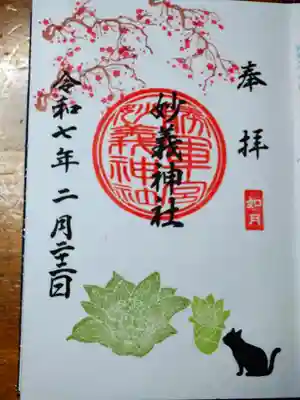 奉拝
如月
妙義神社
勝軍宮
妙義神社
令和七年二月二十二日